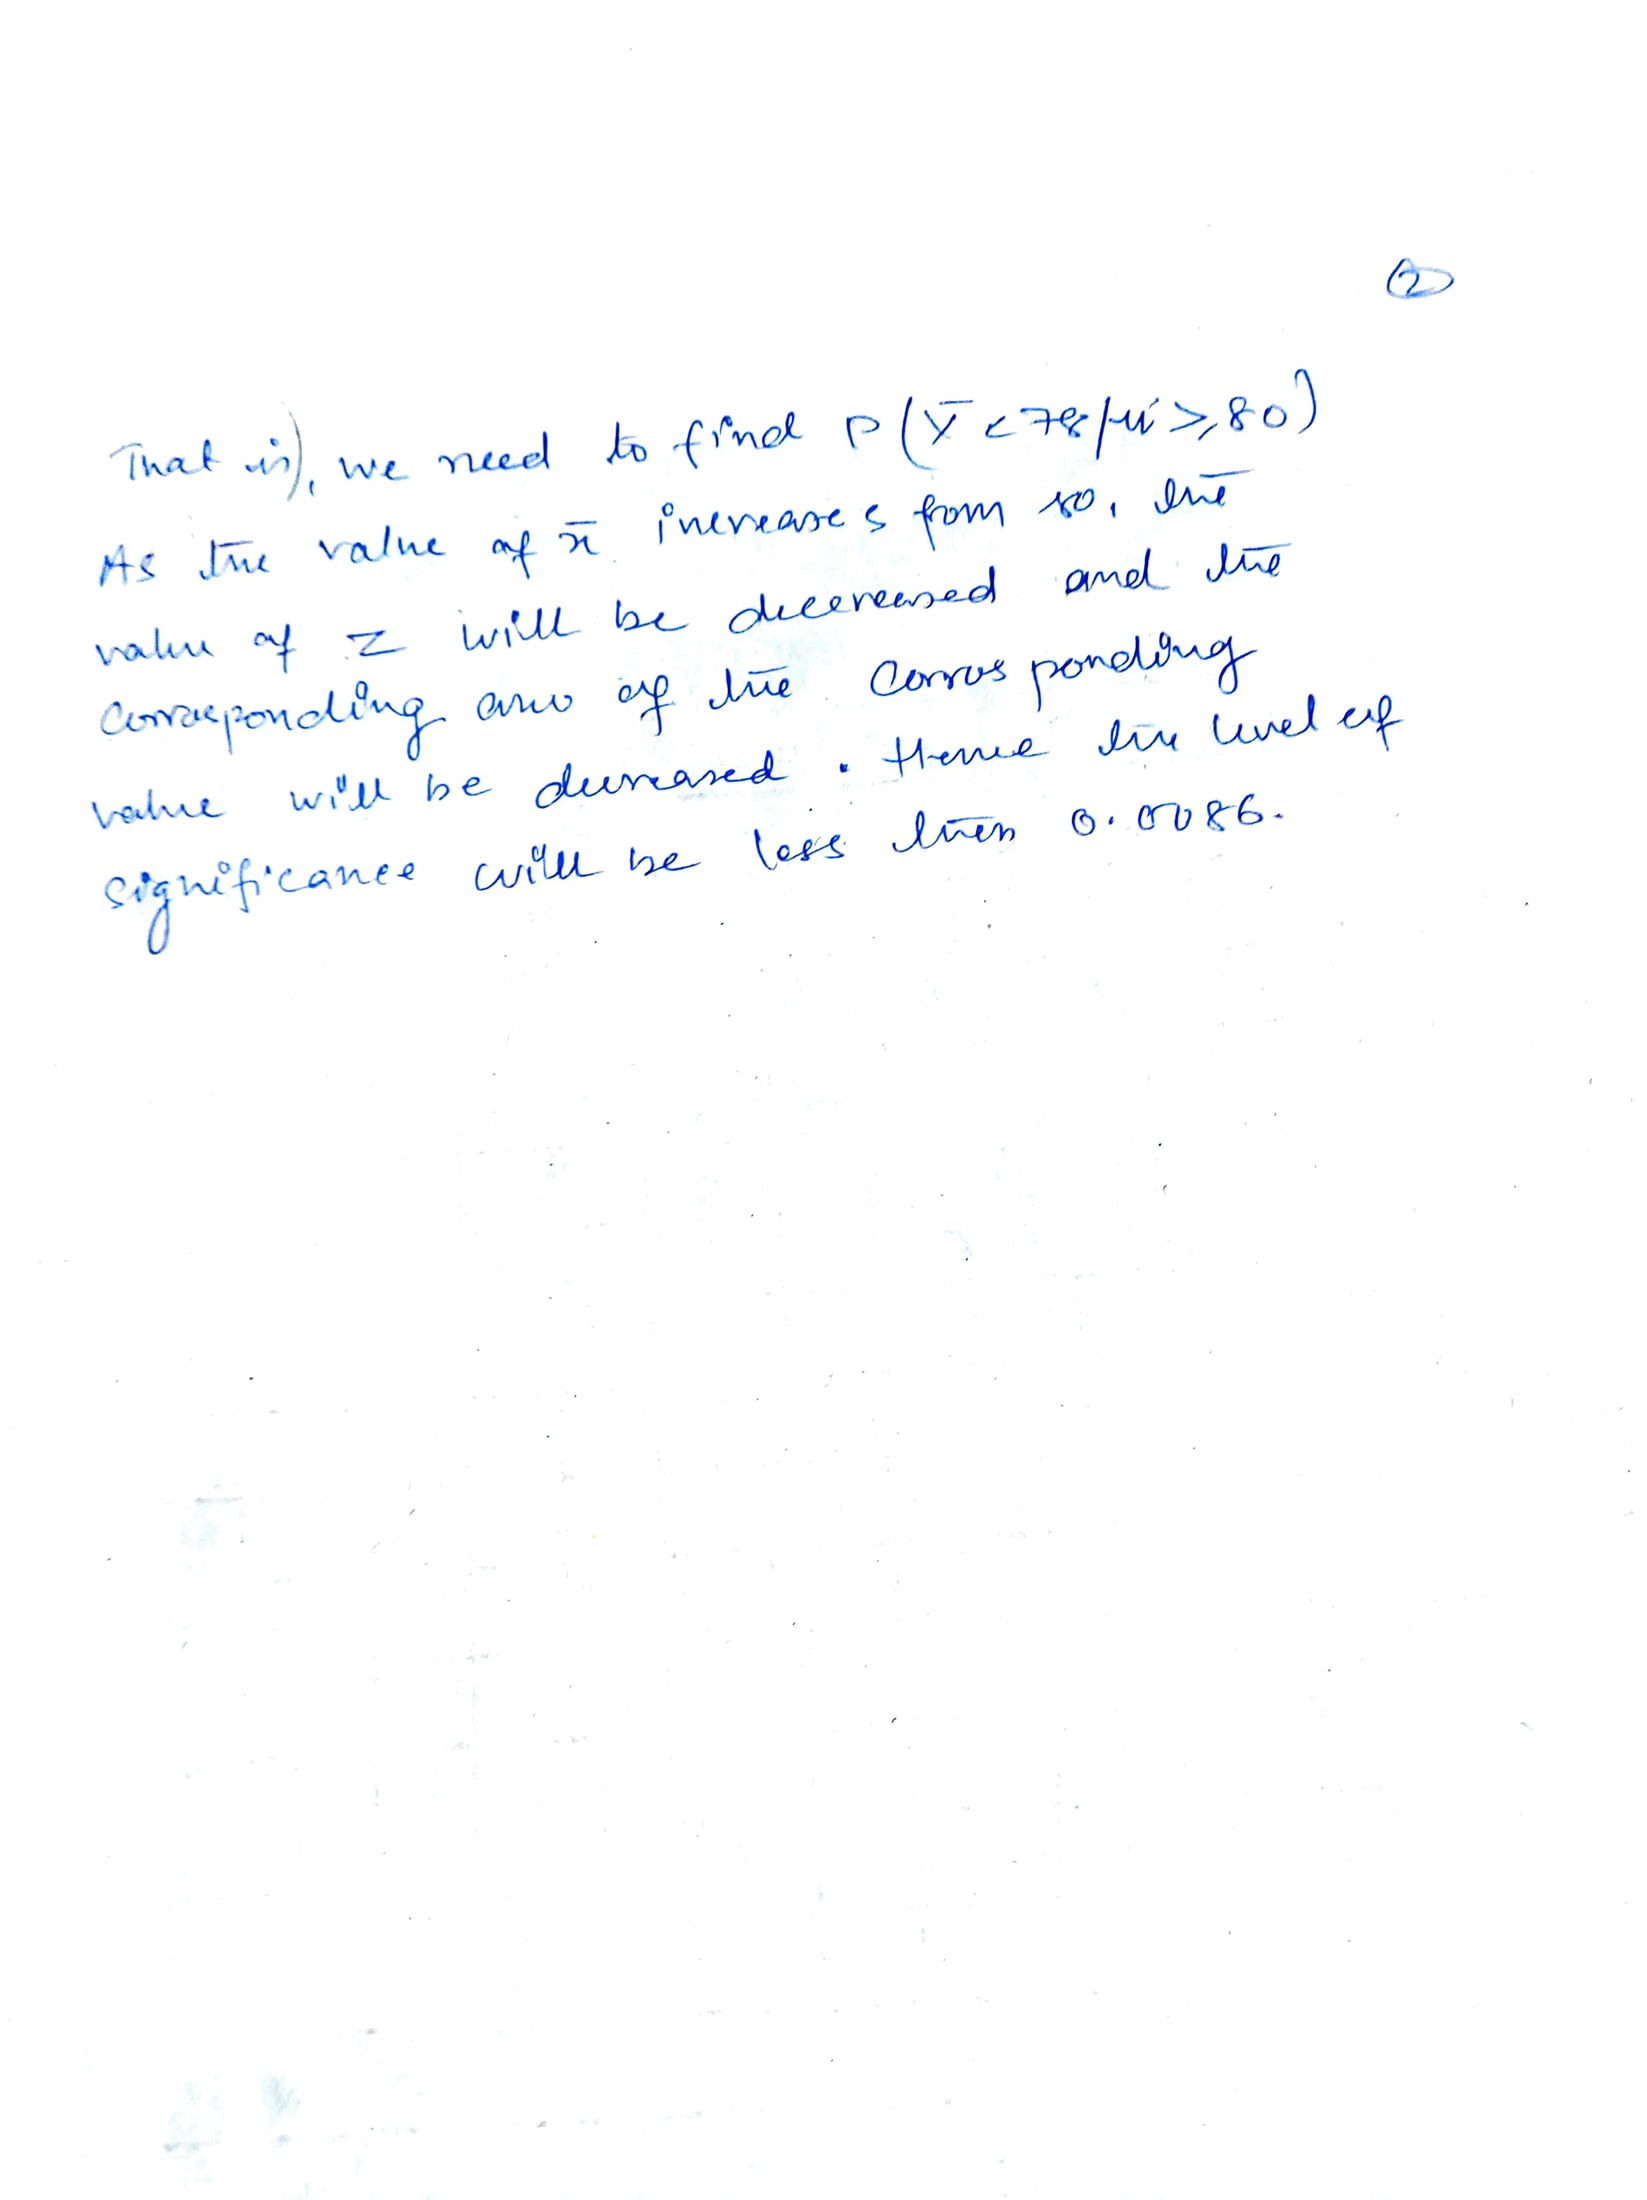 ②
That is), we need to find P(X̄ < 78/μ ≥ 80)
As the value of x̄ increases from 80, the
value of Z will be decereased and the
corresponding area of the Corresponding
value will be decreased. Hence the level of
significance will be less then 0.0086.